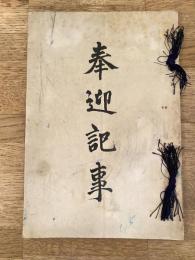 奉迎記事